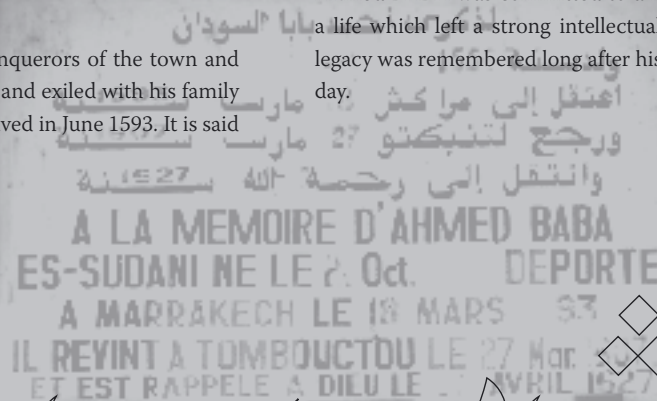 nquerors of the town and
and exiled with his family
ved in June 1593. It is said
a life which left a strong intellectual
legacy was remembered long after his
day.
بابا السودان
اعتقل إلى مراكش مارس سنة
ورجع لتنبكتو 27 مارس سنة
وانتقل إلى رحمة الله سنة 1527
A LA MEMOIRE D'AHMED BABA
ES-SUDANI NE LE Oct. DEPORTE
A MARRAKECH LE 18 MARS 93
IL REVINT A TOMBOUCTOU LE 27 Mar.
ET EST RAPPELE A DIEU LE AVRIL 1527